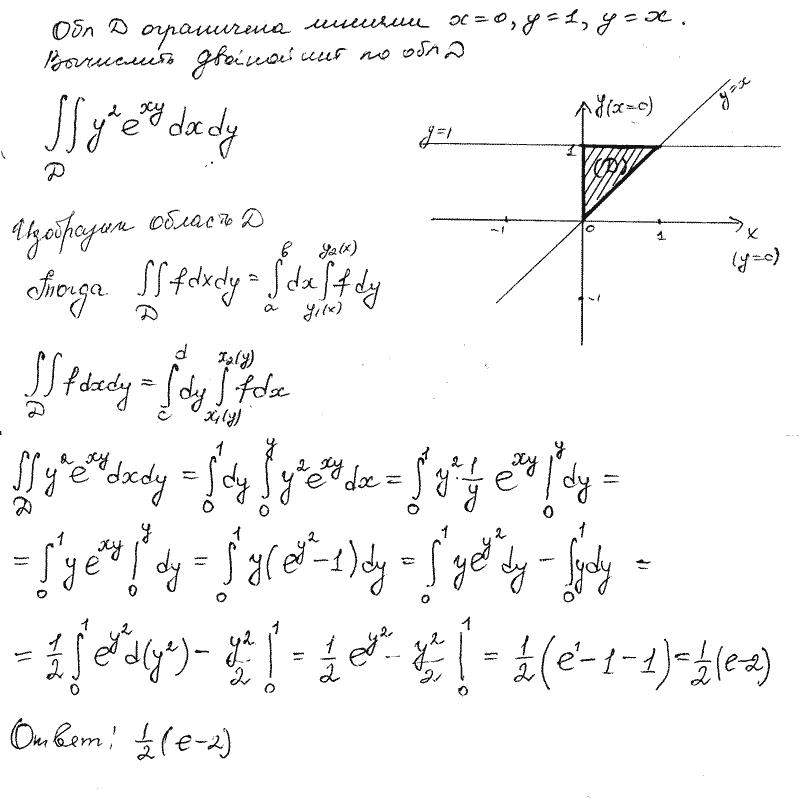 Обл D ограничена линиями x=0, y=1, y=x.
Вычислить двойной инт по обл D
∬_D y²e^{xy} dxdy
y=1
y(x=0)
y=x
1
(D)
-1
0
1
x
(y=0)
-1
Изобразим область D
Тогда ∬_D fdxdy = ∫_a^b dx ∫_{y₁(x)}^{y₂(x)} f dy
∬_D fdxdy = ∫_c^d dy ∫_{x₁(y)}^{x₂(y)} f dx
∬_D y²e^{xy}dxdy = ∫_0^1 dy ∫_0^y y²e^{xy}dx = ∫_0^1 y²·1/y e^{xy}|_0^y dy =
= ∫_0^1 y e^{xy}|_0^y dy = ∫_0^1 y(e^{y²}-1)dy = ∫_0^1 ye^{y²}dy - ∫_0^1 ydy =
= 1/2 ∫_0^1 e^{y²}d(y²) - y²/2 |_0^1 = 1/2 e^{y²} - y²/2 |_0^1 = 1/2(e¹-1-1) = 1/2(e-2)
Ответ: 1/2(e-2)